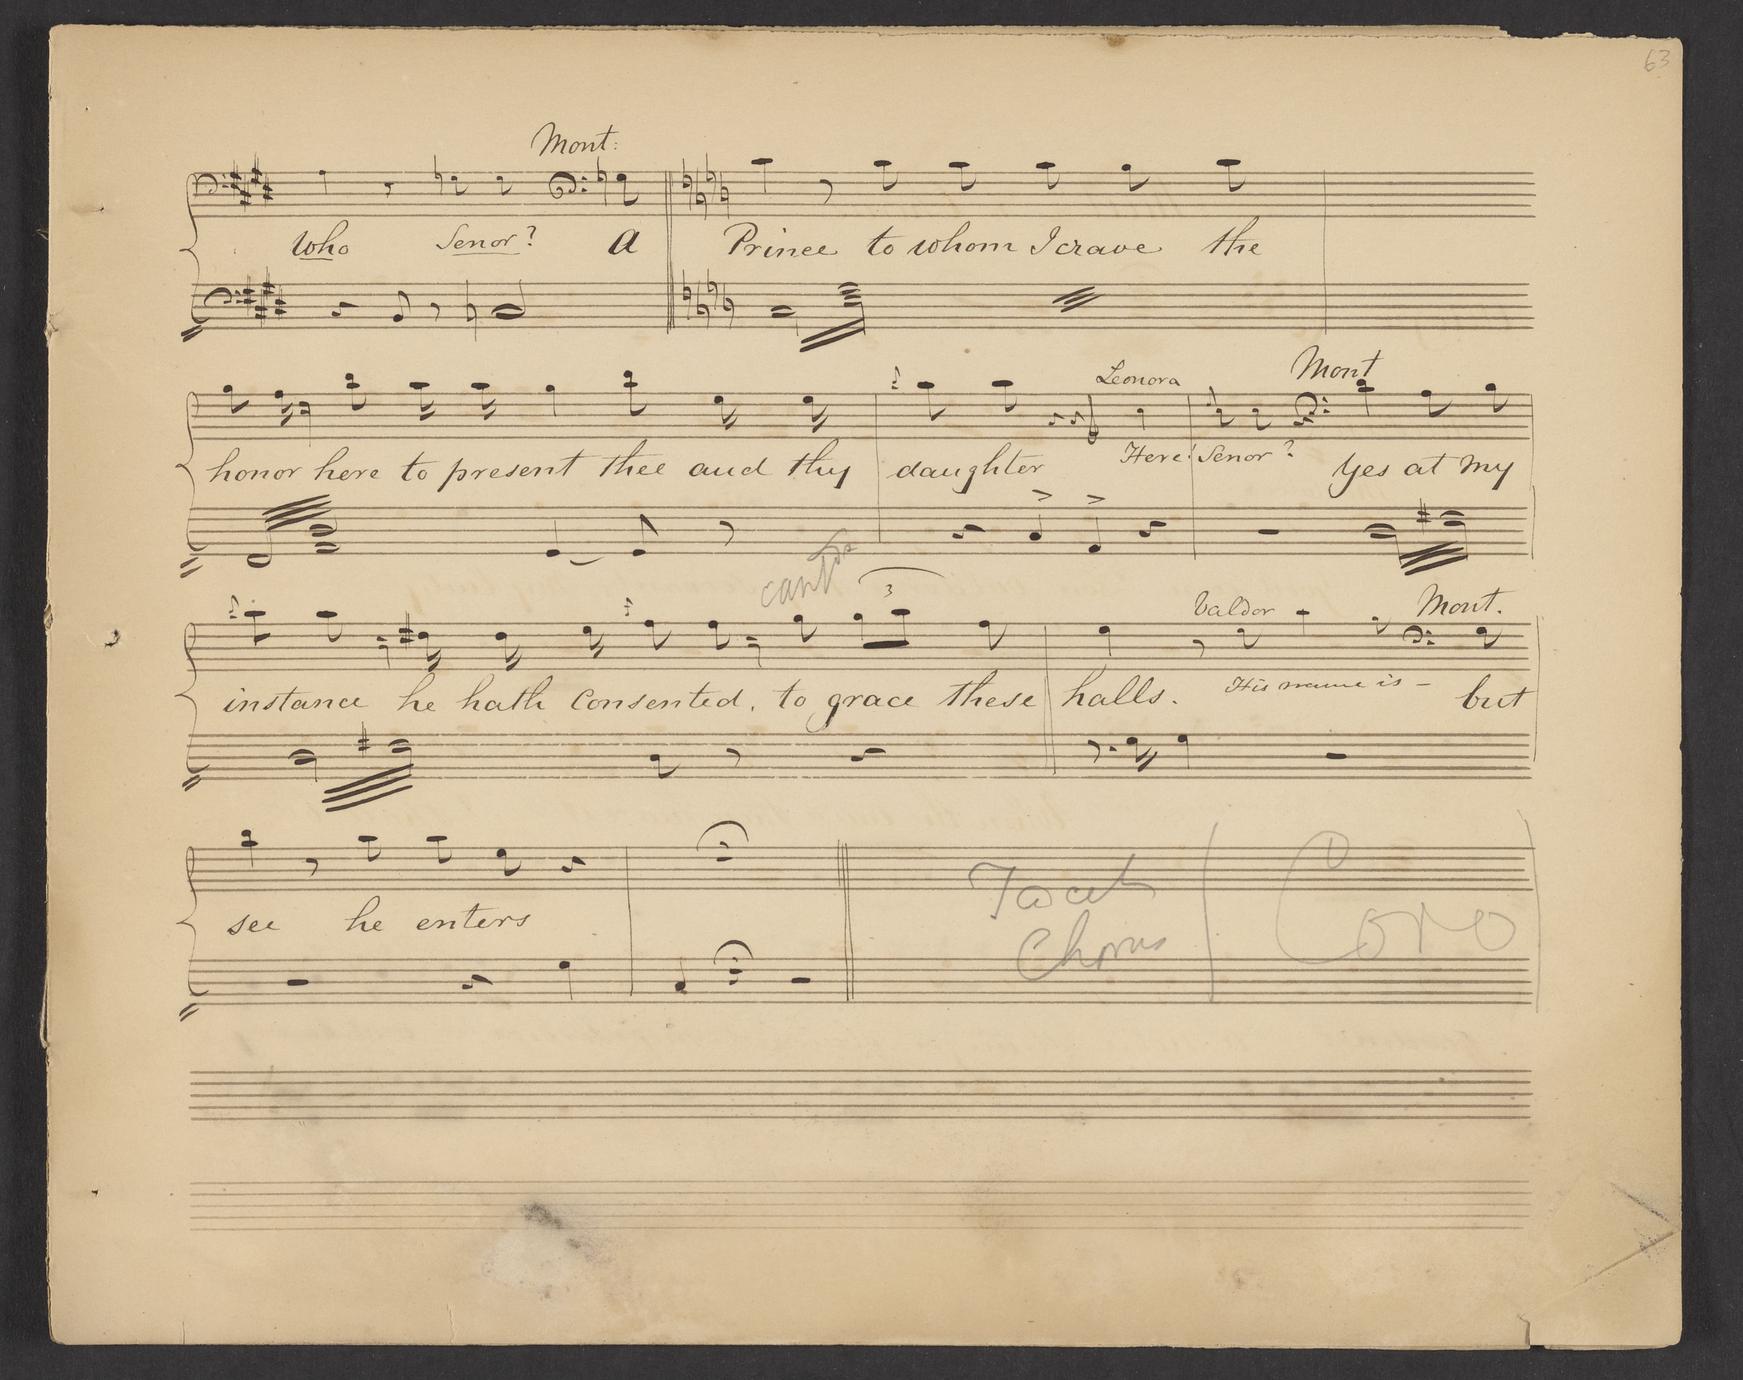 63
Mont:
who Senor? A Prince to whom I crave the
Leonora Mont
honor here to present thee and thy daughter Here! Senor? Yes at my
3 Valdor Mont.
instance he hath Consented, to grace these halls. His name is – but
see he enters
Tacet Coro
Chorus